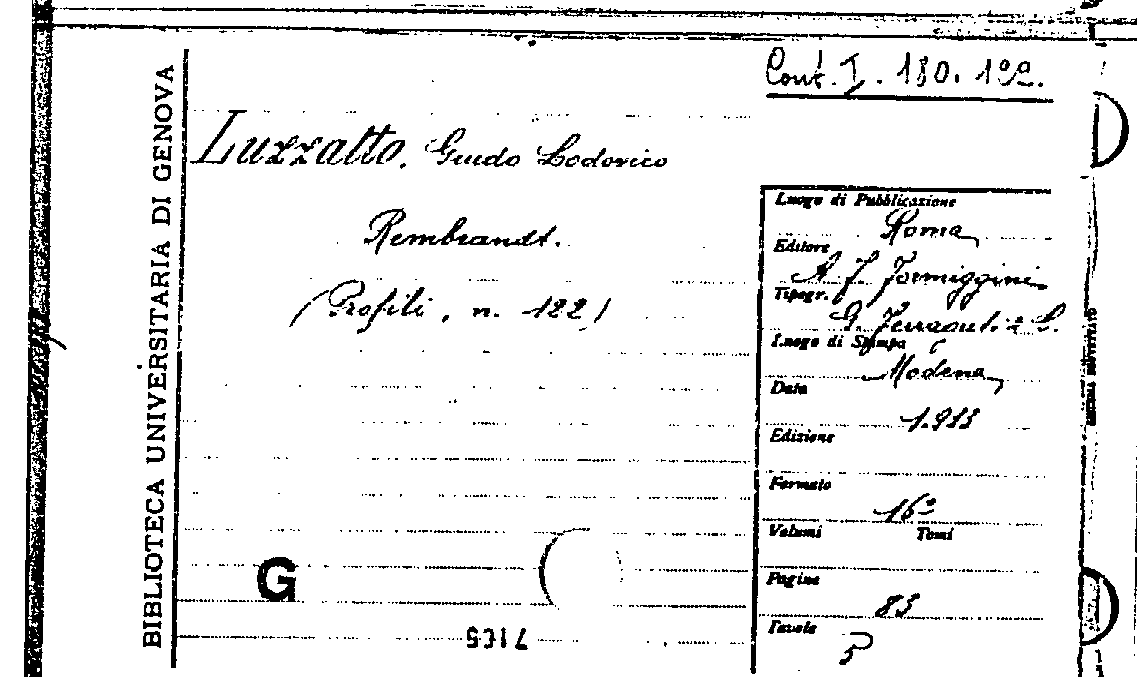 Conf. I. 180. 122.
BIBLIOTECA UNIVERSITARIA DI GENOVA
Luzzatto, Guido Lodovico
Rembrandt.
(Profili, n. 122)
Luogo di Pubblicazione
Roma
Editore
A. F. Formiggini
Tipogr.
G. Ferraguti e C.
Luogo di Stampa
Modena
Data
Edizione
Formato
16°
Volumi Tomi
Pagine
83
Tavole
5
G